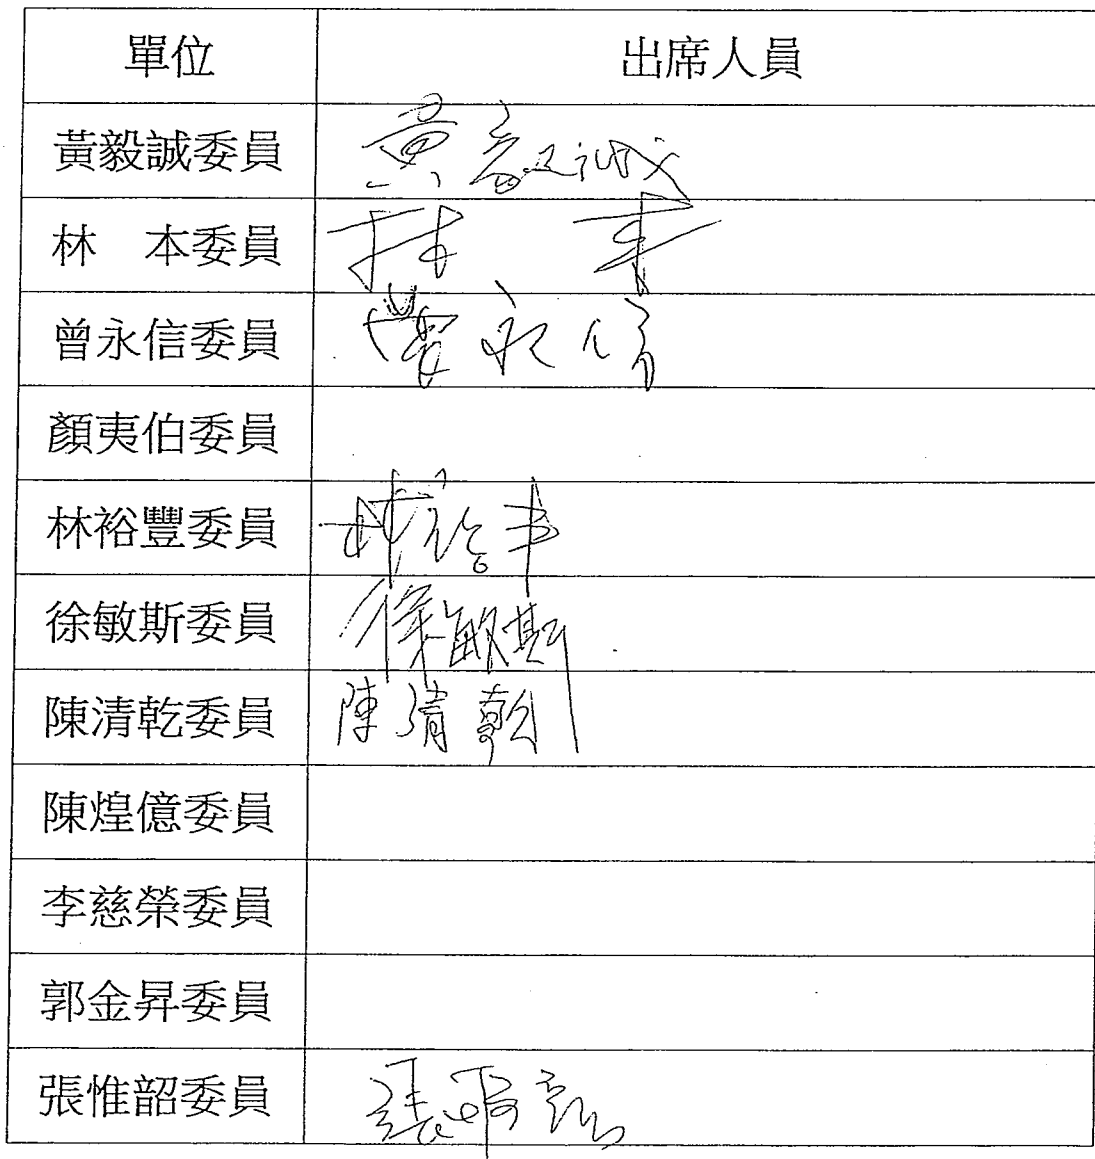 單位 出席人員
黃毅誠委員 黃毅誠
林 本委員 林 本
曾永信委員 曾永信
顏夷伯委員
林裕豐委員 林裕丰
徐敏斯委員 徐敏斯
陳清乾委員 陳清乾
陳煌億委員
李慈榮委員
郭金昇委員
張惟韶委員